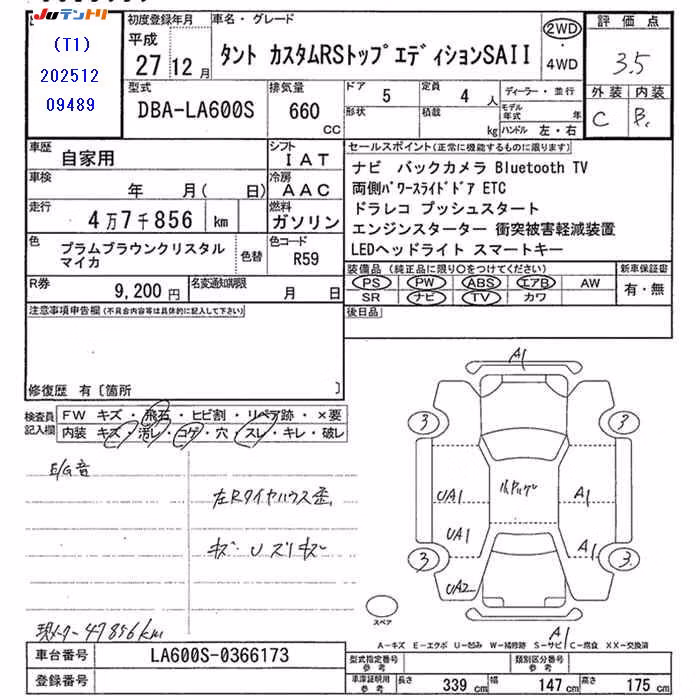 Juテントリ
(T1)
202512
09489
初度登録年月
平成
27年12月
車名・グレード
タント カスタムRSトップエディションSAII
2WD
・
4WD
評価点
3.5
外装 内装
C B
型式
DBA-LA600S
排気量
660
CC
ドア
5
定員
4人
形状
積載
kg
ディーラー・並行
モデル年式 年
ハンドル 左・右
車歴
自家用
シフト
IAT
車検
年 月( 日)
冷房
AAC
走行
4万7千856 km
燃料
ガソリン
色
プラムブラウンクリスタル
マイカ
色替
色コード
R59
R券
9,200円
名変通知期限
月 日
セールスポイント(正常に機能するものに限ります)
ナビ バックカメラ Bluetooth TV
両側パワースライドドア ETC
ドラレコ プッシュスタート
エンジンスターター 衝突被害軽減装置
LEDヘッドライト スマートキー
装備品(純正品に限り○をつけてください)
PS PW ABS エアB AW
SR ナビ TV カワ
新車保証書
有・無
後日品
注意事項申告欄(不具合内容等は具体的に記入して下さい)
修復歴 有〔箇所 〕
検査員
記入欄
FW キズ・飛石・ヒビ割・リペア跡・×要
内装 キズ・汚レ・コゲ・穴・スレ・キレ・破レ
E/G音
左Rタイヤハウス歪
キズ U ズリキズ
現メーター47856km
A1
3
3
UA1
A1
UA1
A1
3
3
UA2
A1
スペア
A-キズ E-エクボ U-凹み W-補修跡 S-サビ C-腐食 XX-交換済
車台番号
LA600S-0366173
登録番号
型式指定番号
参考
類別区分番号
参考
車庫証明用
参考
長さ 339cm
幅 147cm
高さ 175cm